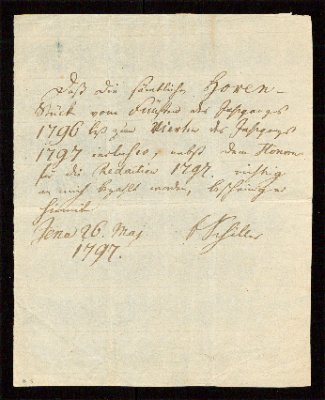 Daß die sämtlichen Horen-
Stück vom Fünften des Jahrgangs
1796 biß zum Vierten des Jahrgangs
1797 nebst dem Honorar
für die Redaction 1797. richtig
an mich bezahlt worden, bescheinige
hiemit.
Jena 26. Maj
1797.
Schiller